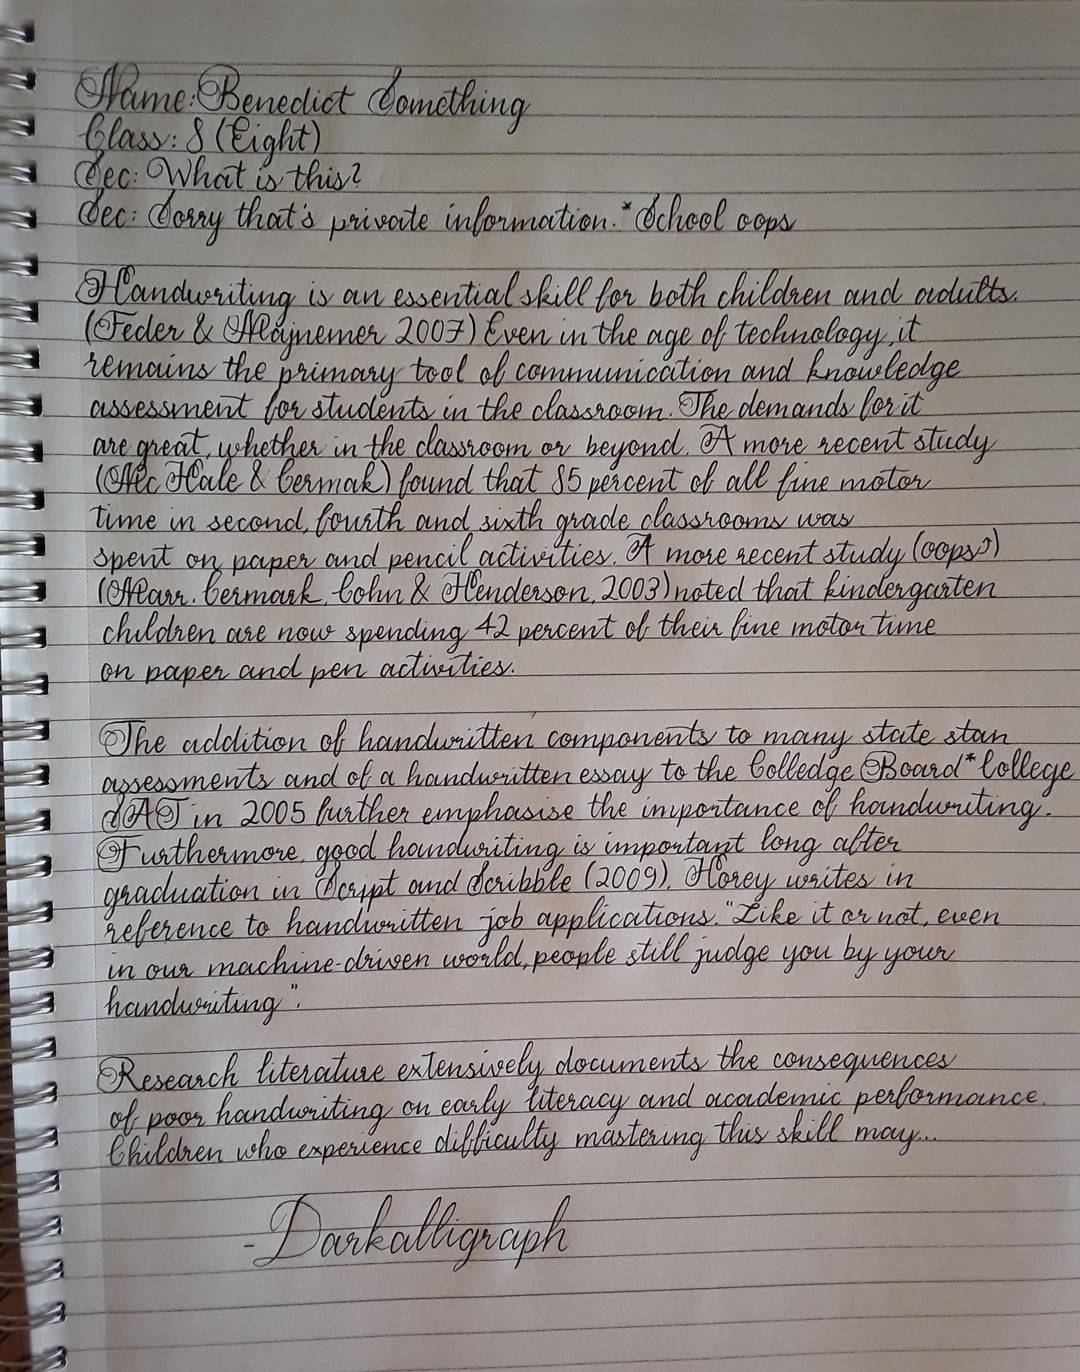 Name: Benedict Something
Class: 8 (Eight)
Sec: What is this?
Sec: Sorry that's private information. *School oops
Handwriting is an essential skill for both children and adults.
(Feder & Majnemer 2007) Even in the age of technology, it
remains the primary tool of communication and knowledge
assessment for students in the classroom. The demands for it
are great, whether in the classroom or beyond. A more recent study
(Mc Hale & Cermak) found that 85 percent of all fine motor
time in second, fourth and sixth grade classrooms was
spent on paper and pencil activities. A more recent study (oops)
(Marr. Cermark, Cohn & Henderson, 2003) noted that kindergarten
children are now spending 42 percent of their fine motor time
on paper and pen activities.
The addition of handwritten components to many state stan
assessments and of a handwritten essay to the Colledge Board *College
SAT in 2005 further emphasise the importance of handwriting.
Furthermore, good handwriting is important long after
graduation in Script and Scribble (2009), Florey writes in
reference to handwritten job applications. "Like it or not, even
in our machine-driven world, people still judge you by your
handwriting".
Research literature extensively documents the consequences
of poor handwriting on early literacy and academic performance.
Children who experience difficulty mastering this skill may...
-Darkalligraph